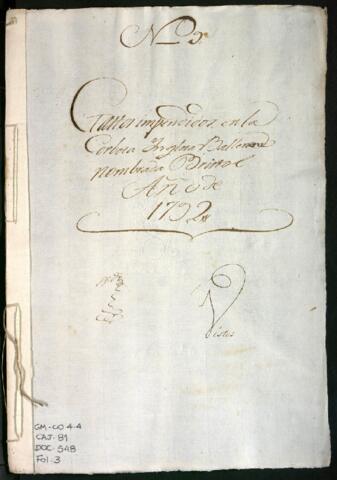 Gastos impendidos, en la
Corbeta Inglesa Ballenera
nombrada Bristol
Año de
1792
Visto
GM-CO 4-4
CAJ. 81
DOC. 548
Fol. 3